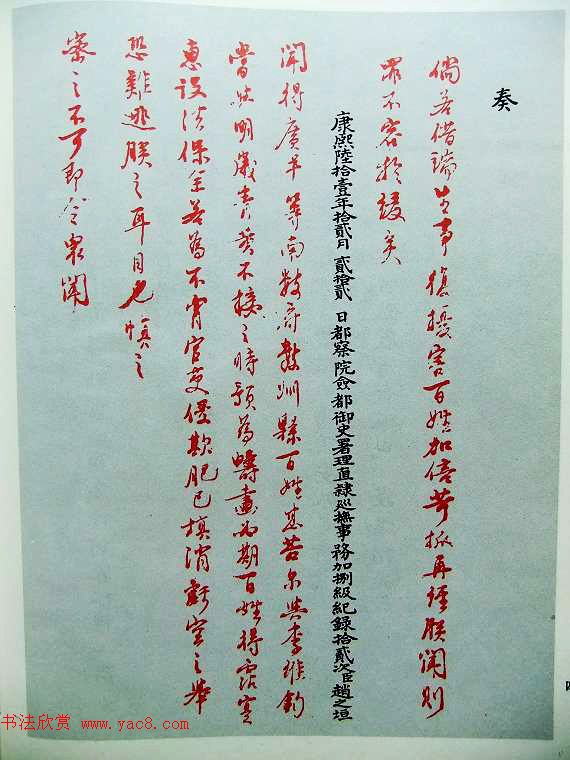 奏
倘若借端生事復擾害百姓加倍苛派再經朕聞則
罪不容於緩矣
康熙陸拾壹年拾貳月 貳拾貳 日都察院僉都御史署理直隸巡撫事務加捌級紀錄拾貳次臣趙之垣
聞得廣平等南數府數州縣百姓甚苦尔與李維鈞
明歲青黃不接之時預為籌畫必期百姓得霑實
惠設法保全若為不肖官吏侵欺肥己填消虧空之舉
恐難逃朕之耳目也慎之
密之不可即令衆聞
书法欣赏 / www.yac8.com